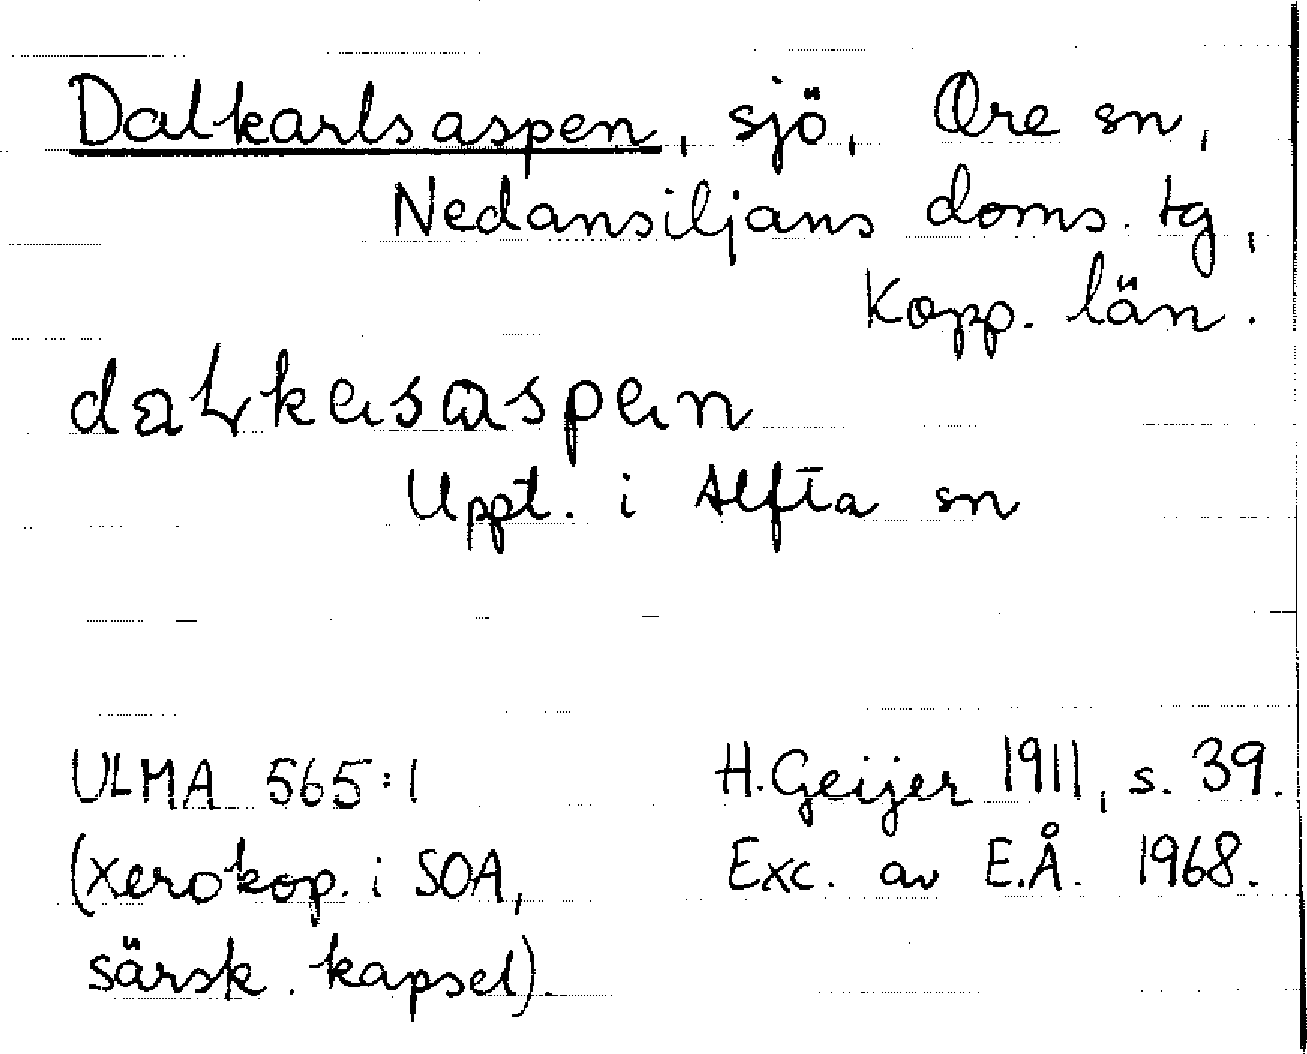 Dalkarlsaspen, sjö, Ore sn,
Nedansiljans doms. tg,
Kopp. län.
Uppt. i Alfta sn
ULMA 565:1
H. Geijer 1911, s. 39.
(xerokop. i SOA,
Exc. av E.Å. 1968.
särsk. kapsel).